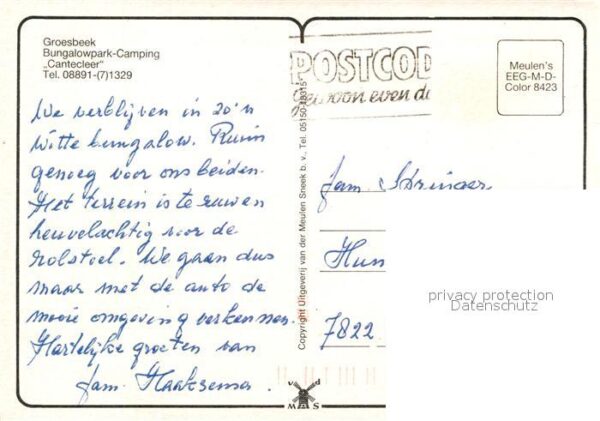 Groesbeek
Bungalowpark-Camping
„Cantecleer"
Tel. 08891-(7)1329
We verblijven in zo'n
witte bungalow. Ruim
genoeg voor ons beiden.
Het terrein is te
heuvelachtig voor de
rolstoel. We gaan dus
maar met de auto de
mooie omgeving verkennen.
Hartelijke groeten van
fam. Haaksema.
Copyright Uitgeverij van der Meulen Sneek b. v., Tel. 05150-18315
v d
M S
POSTCOD
gewoon even d
Meulen's
EEG-M-D-
Color 8423
fam.
Hun
7822
privacy protection
Datenschutz